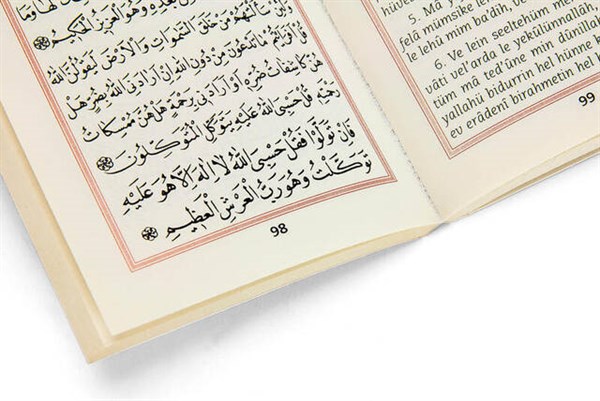 لَهَا وَمَا
بَعْدِهِ وَهُوَ الْعَزِيزُ الْحَكِيمُ
سَاَلْتَهُمْ مَنْ خَلَقَ السَّمٰوَاتِ وَالْاَرْضَ لَيَقُولُنَّ اللّٰهُ
قُلْ اَفَرَاَيْتُمْ مَا تَدْعُونَ مِنْ دُونِ اللّٰهِ اِنْ اَرَادَنِيَ اللّٰهُ بِضُرٍّ هَلْ
هُنَّ كَاشِفَاتُ ضُرِّهِ اَوْ اَرَادَنِي بِرَحْمَةٍ هَلْ هُنَّ مُمْسِكَاتُ
رَحْمَتِهِ قُلْ حَسْبِيَ اللّٰهُ عَلَيْهِ يَتَوَكَّلُ الْمُتَوَكِّلُونَ
فَاِنْ تَوَلَّوْا فَقُلْ حَسْبِيَ اللّٰهُ لَا اِلٰهَ اِلَّا هُوَ عَلَيْهِ
تَوَكَّلْتُ وَهُوَ رَبُّ الْعَرْشِ الْعَظِيمِ
98
5. Mâ
felâ mümsike
le lehû mim ba'dih, ve
6. Ve lein seeltehüm
vâti vel'arda le yekûlünnallâh
tüm mâ ted'ûne min dûnillah
yallahü bidurrin hel hünne
ev erâdenî birahmetin hel
99